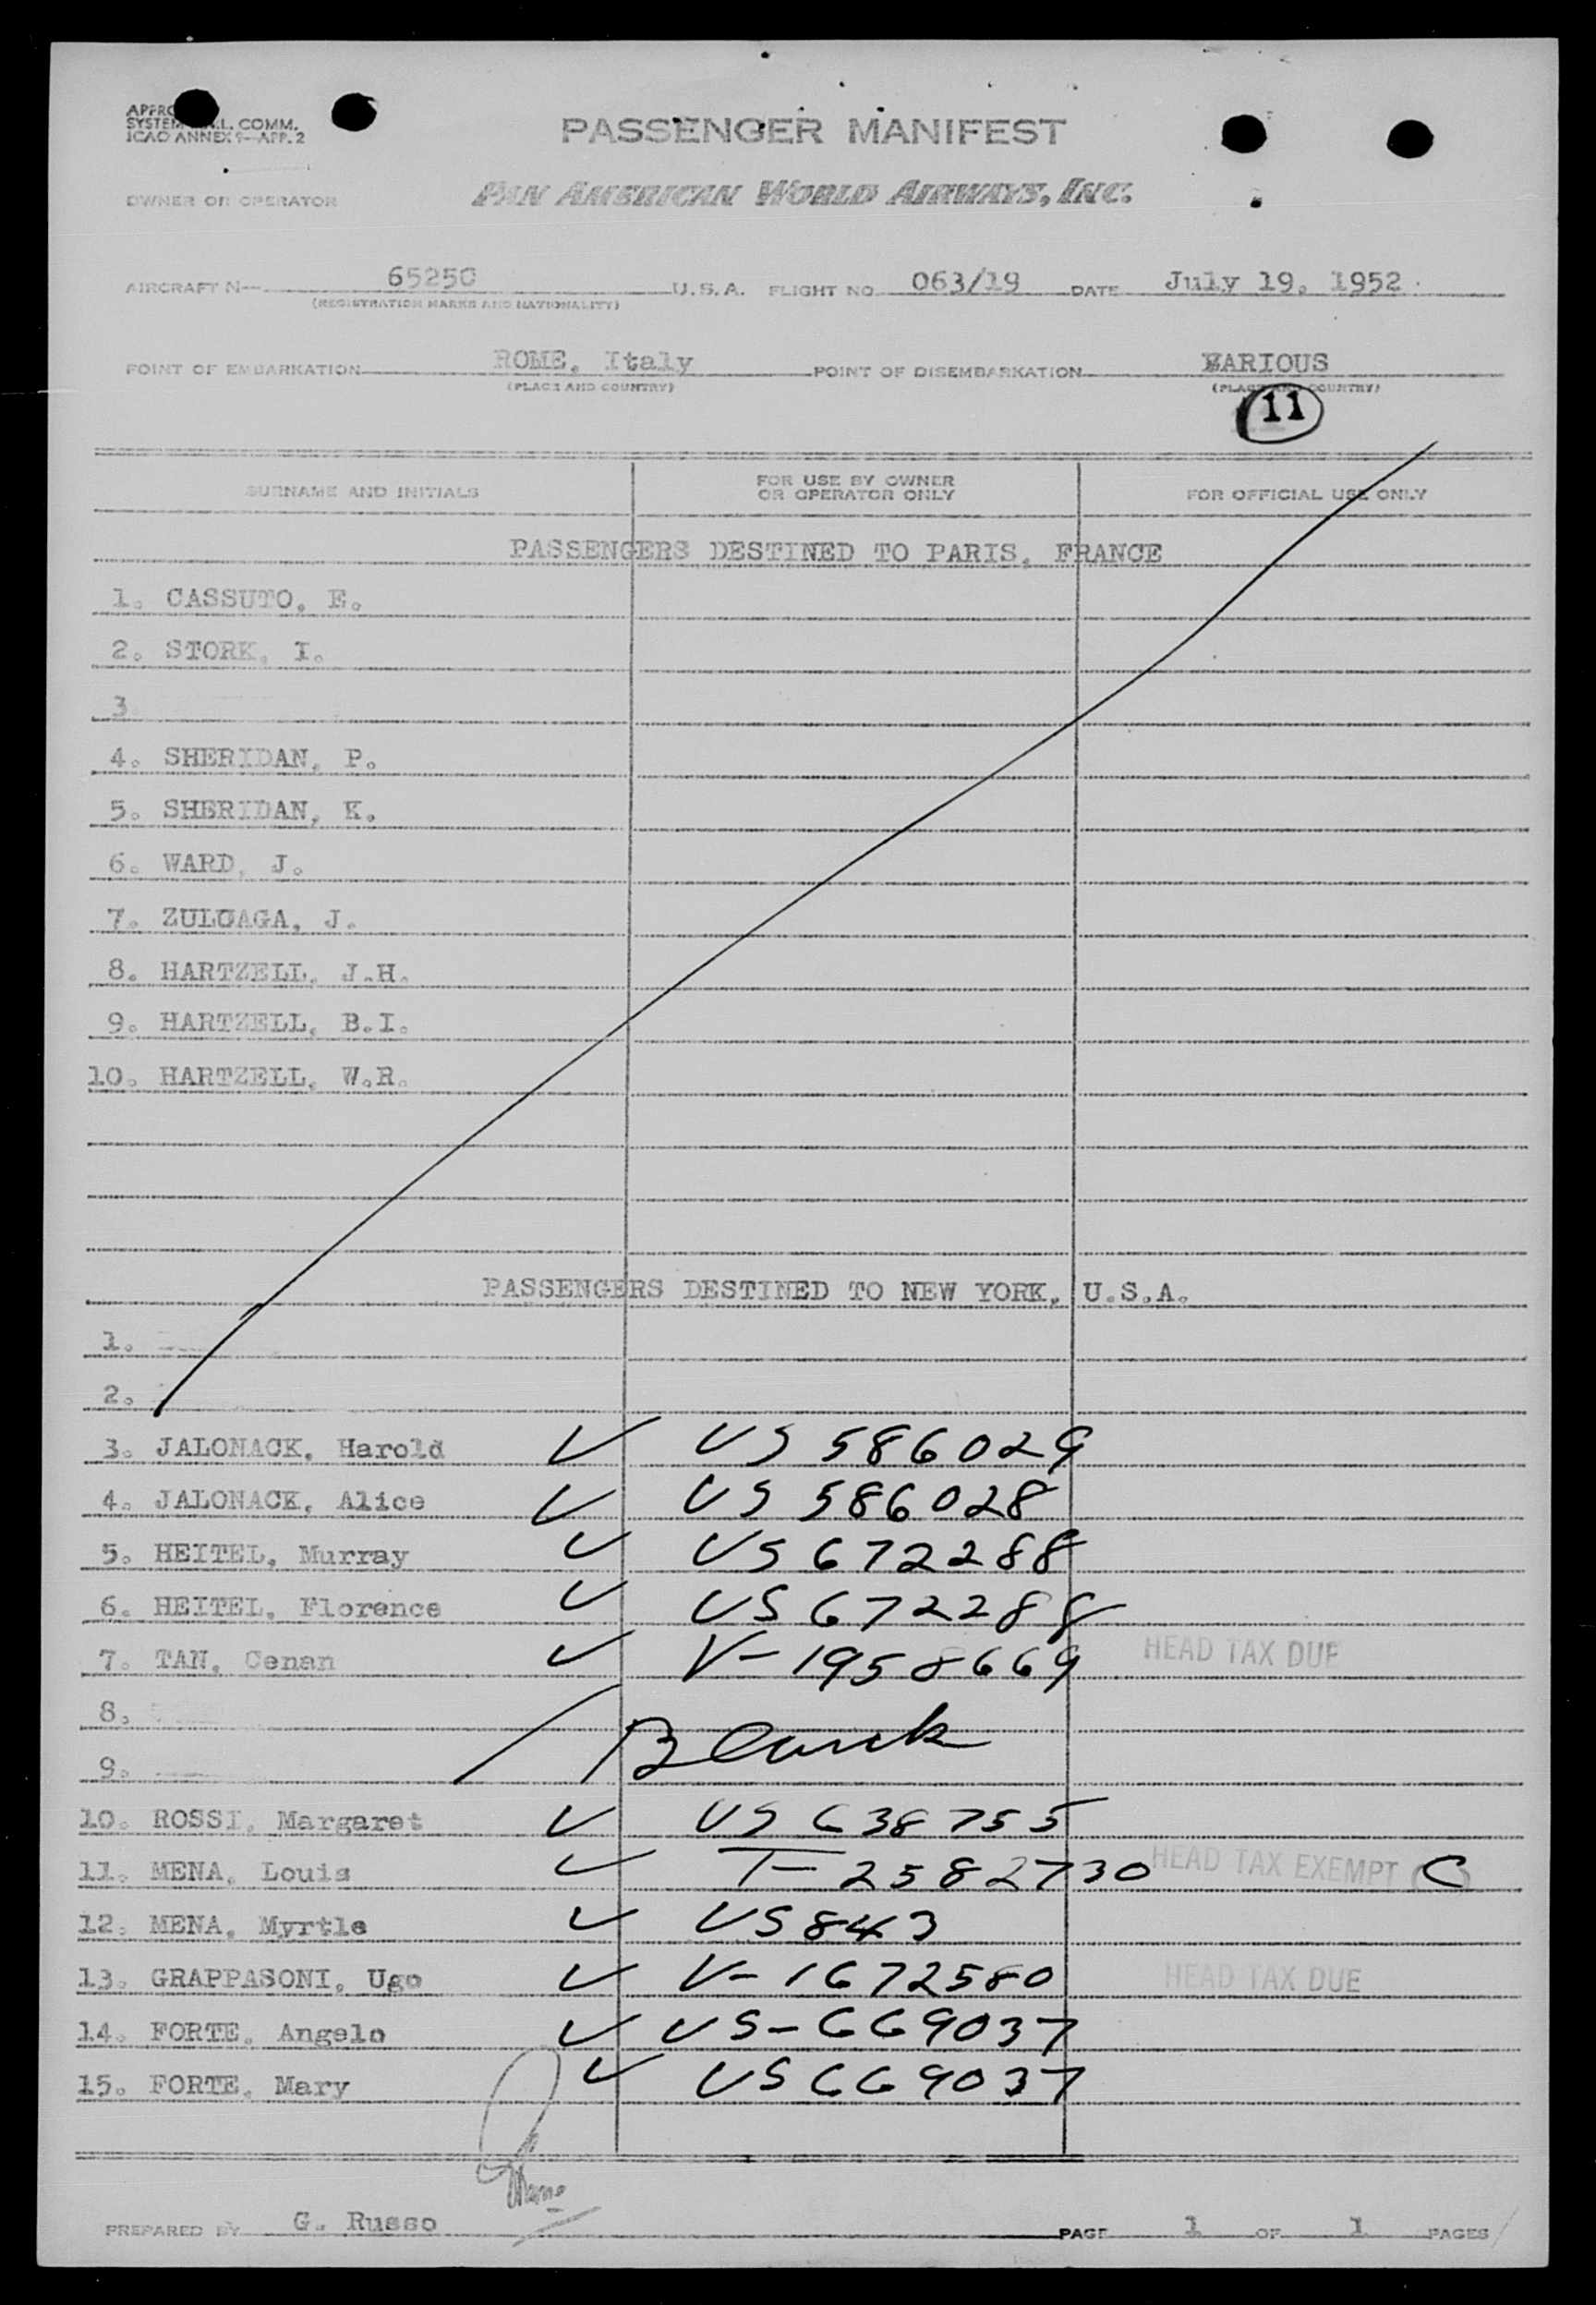 PASSENGER MANIFEST
ICAO ANNEX 9—APP. 2
OWNER OR OPERATOR PAN AMERICAN WORLD AIRWAYS, INC.
AIRCRAFT N— 6525C U.S.A. FLIGHT NO. 063/19 DATE July 19, 1952.
(REGISTRATION MARKS AND NATIONALITY)
POINT OF EMBARKATION ROME, Italy POINT OF DISEMBARKATION VARIOUS
(PLACE AND COUNTRY) (PLACE AND COUNTRY)
11
SURNAME AND INITIALS FOR USE BY OWNER OR OPERATOR ONLY FOR OFFICIAL USE ONLY
PASSENGERS DESTINED TO PARIS, FRANCE
1. CASSUTO, E.
2. STORK, I.
3
4. SHERIDAN, P.
5. SHERIDAN, K.
6. WARD, J.
7. ZULOAGA, J.
8. HARTZELL, J.H.
9. HARTZELL, B.I.
10. HARTZELL, W.R.
PASSENGERS DESTINED TO NEW YORK, U.S.A.
1.
2.
3. JALONACK, Harold ✓ US 586029
4. JALONACK, Alice ✓ US 586028
5. HEITEL, Murray ✓ US 672288
6. HEITEL, Florence ✓ US 672288
7. TAN, Cenan ✓ V-1958669 HEAD TAX DUE
8.
9. Blank
10. ROSSI, Margaret ✓ US 638755
11. MENA, Louis ✓ T-2582730 HEAD TAX EXEMPT C
12. MENA, Myrtle ✓ US 843
13. GRAPPASONI, Ugo ✓ V-1672580 HEAD TAX DUE
14. FORTE, Angelo ✓ US-669037
15. FORTE, Mary ✓ US 669037
PREPARED BY G. Russo PAGE 1 OF 1 PAGES